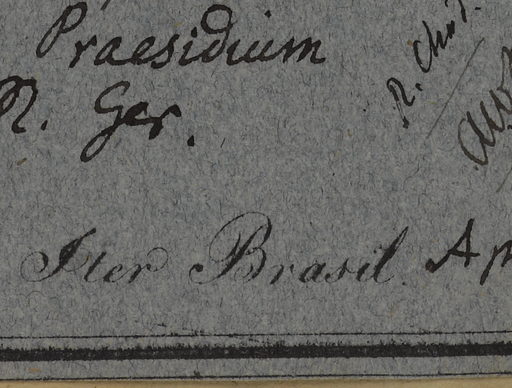 Praesidium
R. Ger.
Iter Brasil. Ap